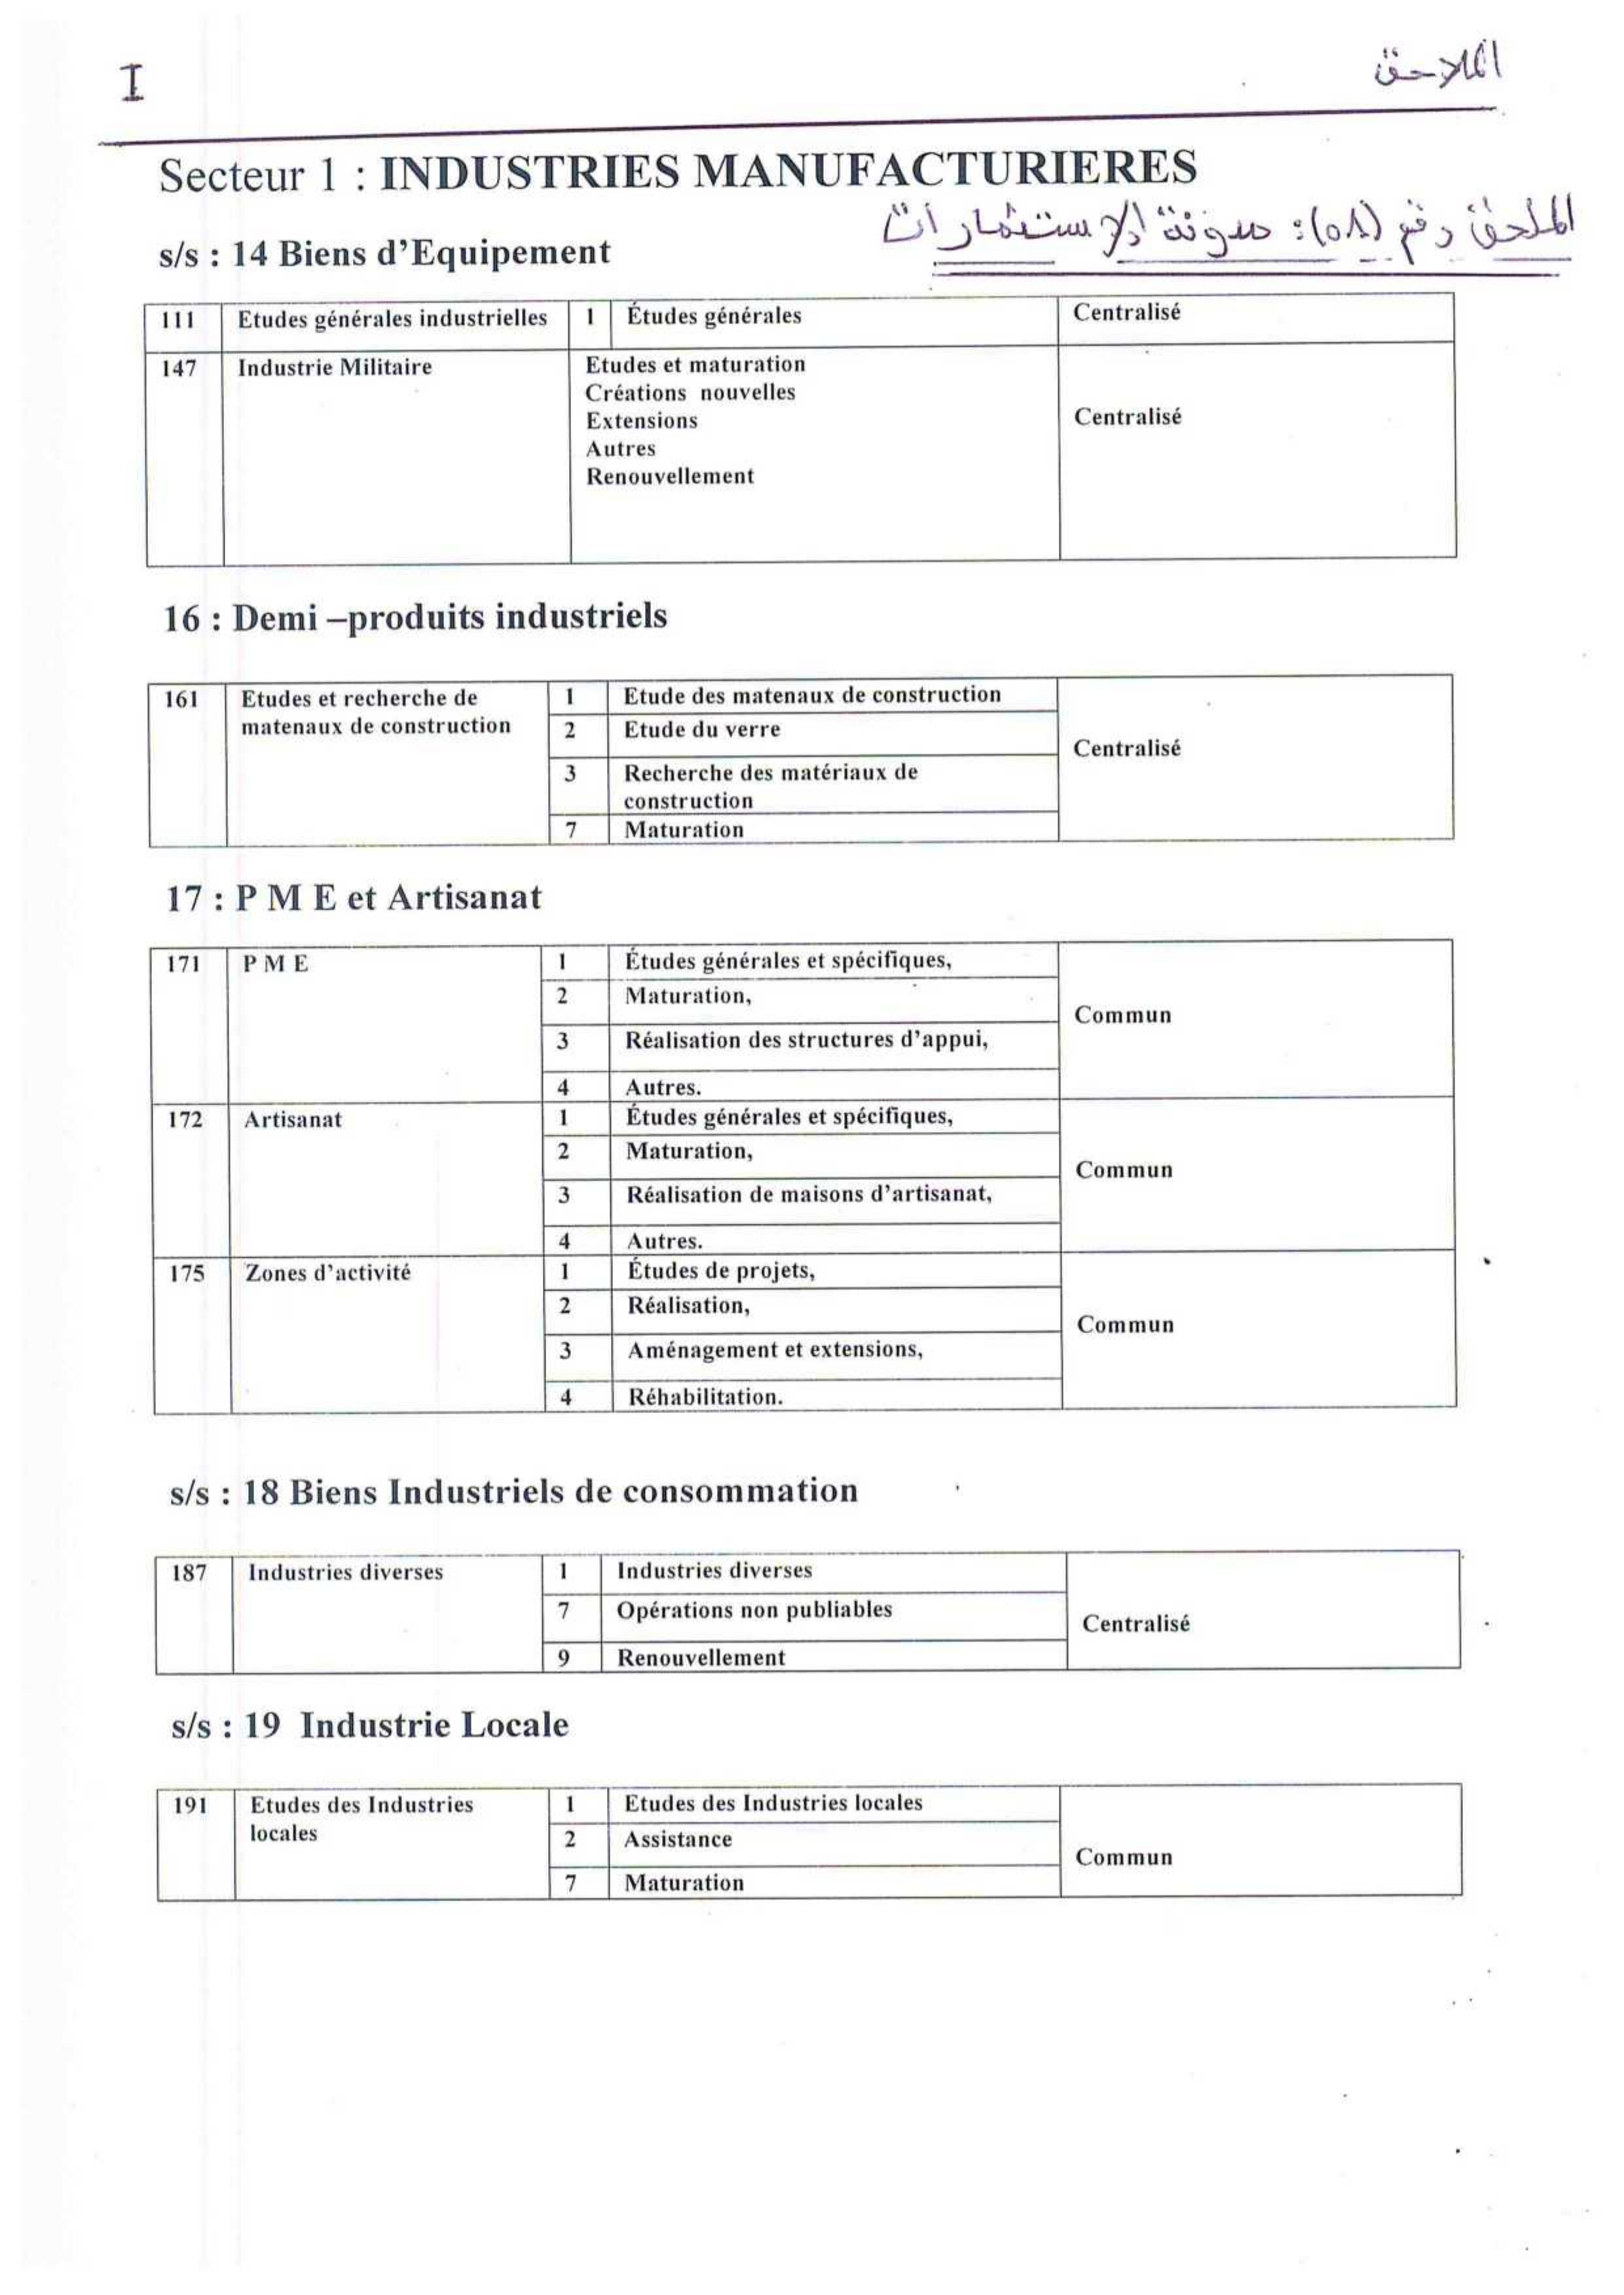 I
الملاحق
Secteur 1 : INDUSTRIES MANUFACTURIERES
الملحق رقم (01): مدونة الإستثمارات
s/s : 14 Biens d'Equipement
111 Etudes générales industrielles 1 Études générales Centralisé
147 Industrie Militaire Etudes et maturation
Créations nouvelles
Extensions Centralisé
Autres
Renouvellement
16 : Demi –produits industriels
161 Etudes et recherche de 1 Etude des matenaux de construction
matenaux de construction 2 Etude du verre
Centralisé
3 Recherche des matériaux de
construction
7 Maturation
17 : P M E et Artisanat
171 P M E 1 Études générales et spécifiques,
2 Maturation,
Commun
3 Réalisation des structures d'appui,
4 Autres.
172 Artisanat 1 Études générales et spécifiques,
2 Maturation,
Commun
3 Réalisation de maisons d'artisanat,
4 Autres.
175 Zones d'activité 1 Études de projets,
2 Réalisation,
Commun
3 Aménagement et extensions,
4 Réhabilitation.
s/s : 18 Biens Industriels de consommation
187 Industries diverses 1 Industries diverses
7 Opérations non publiables
Centralisé
9 Renouvellement
s/s : 19 Industrie Locale
191 Etudes des Industries 1 Etudes des Industries locales
locales 2 Assistance
Commun
7 Maturation